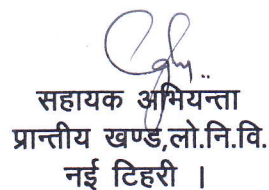 सहायक अभियन्ता
प्रान्तीय खण्ड,लो.नि.वि.
नई टिहरी ।